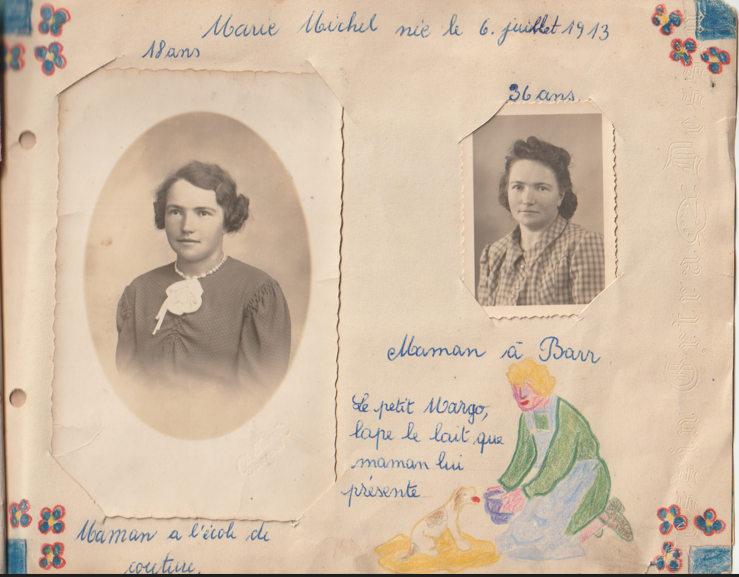 Marie Michel née le 6. juillet 1913
18 ans
36 ans.
Maman à Barr
Le petit Margo,
lape le lait que
maman lui
présente
Maman a l'école de
couture.